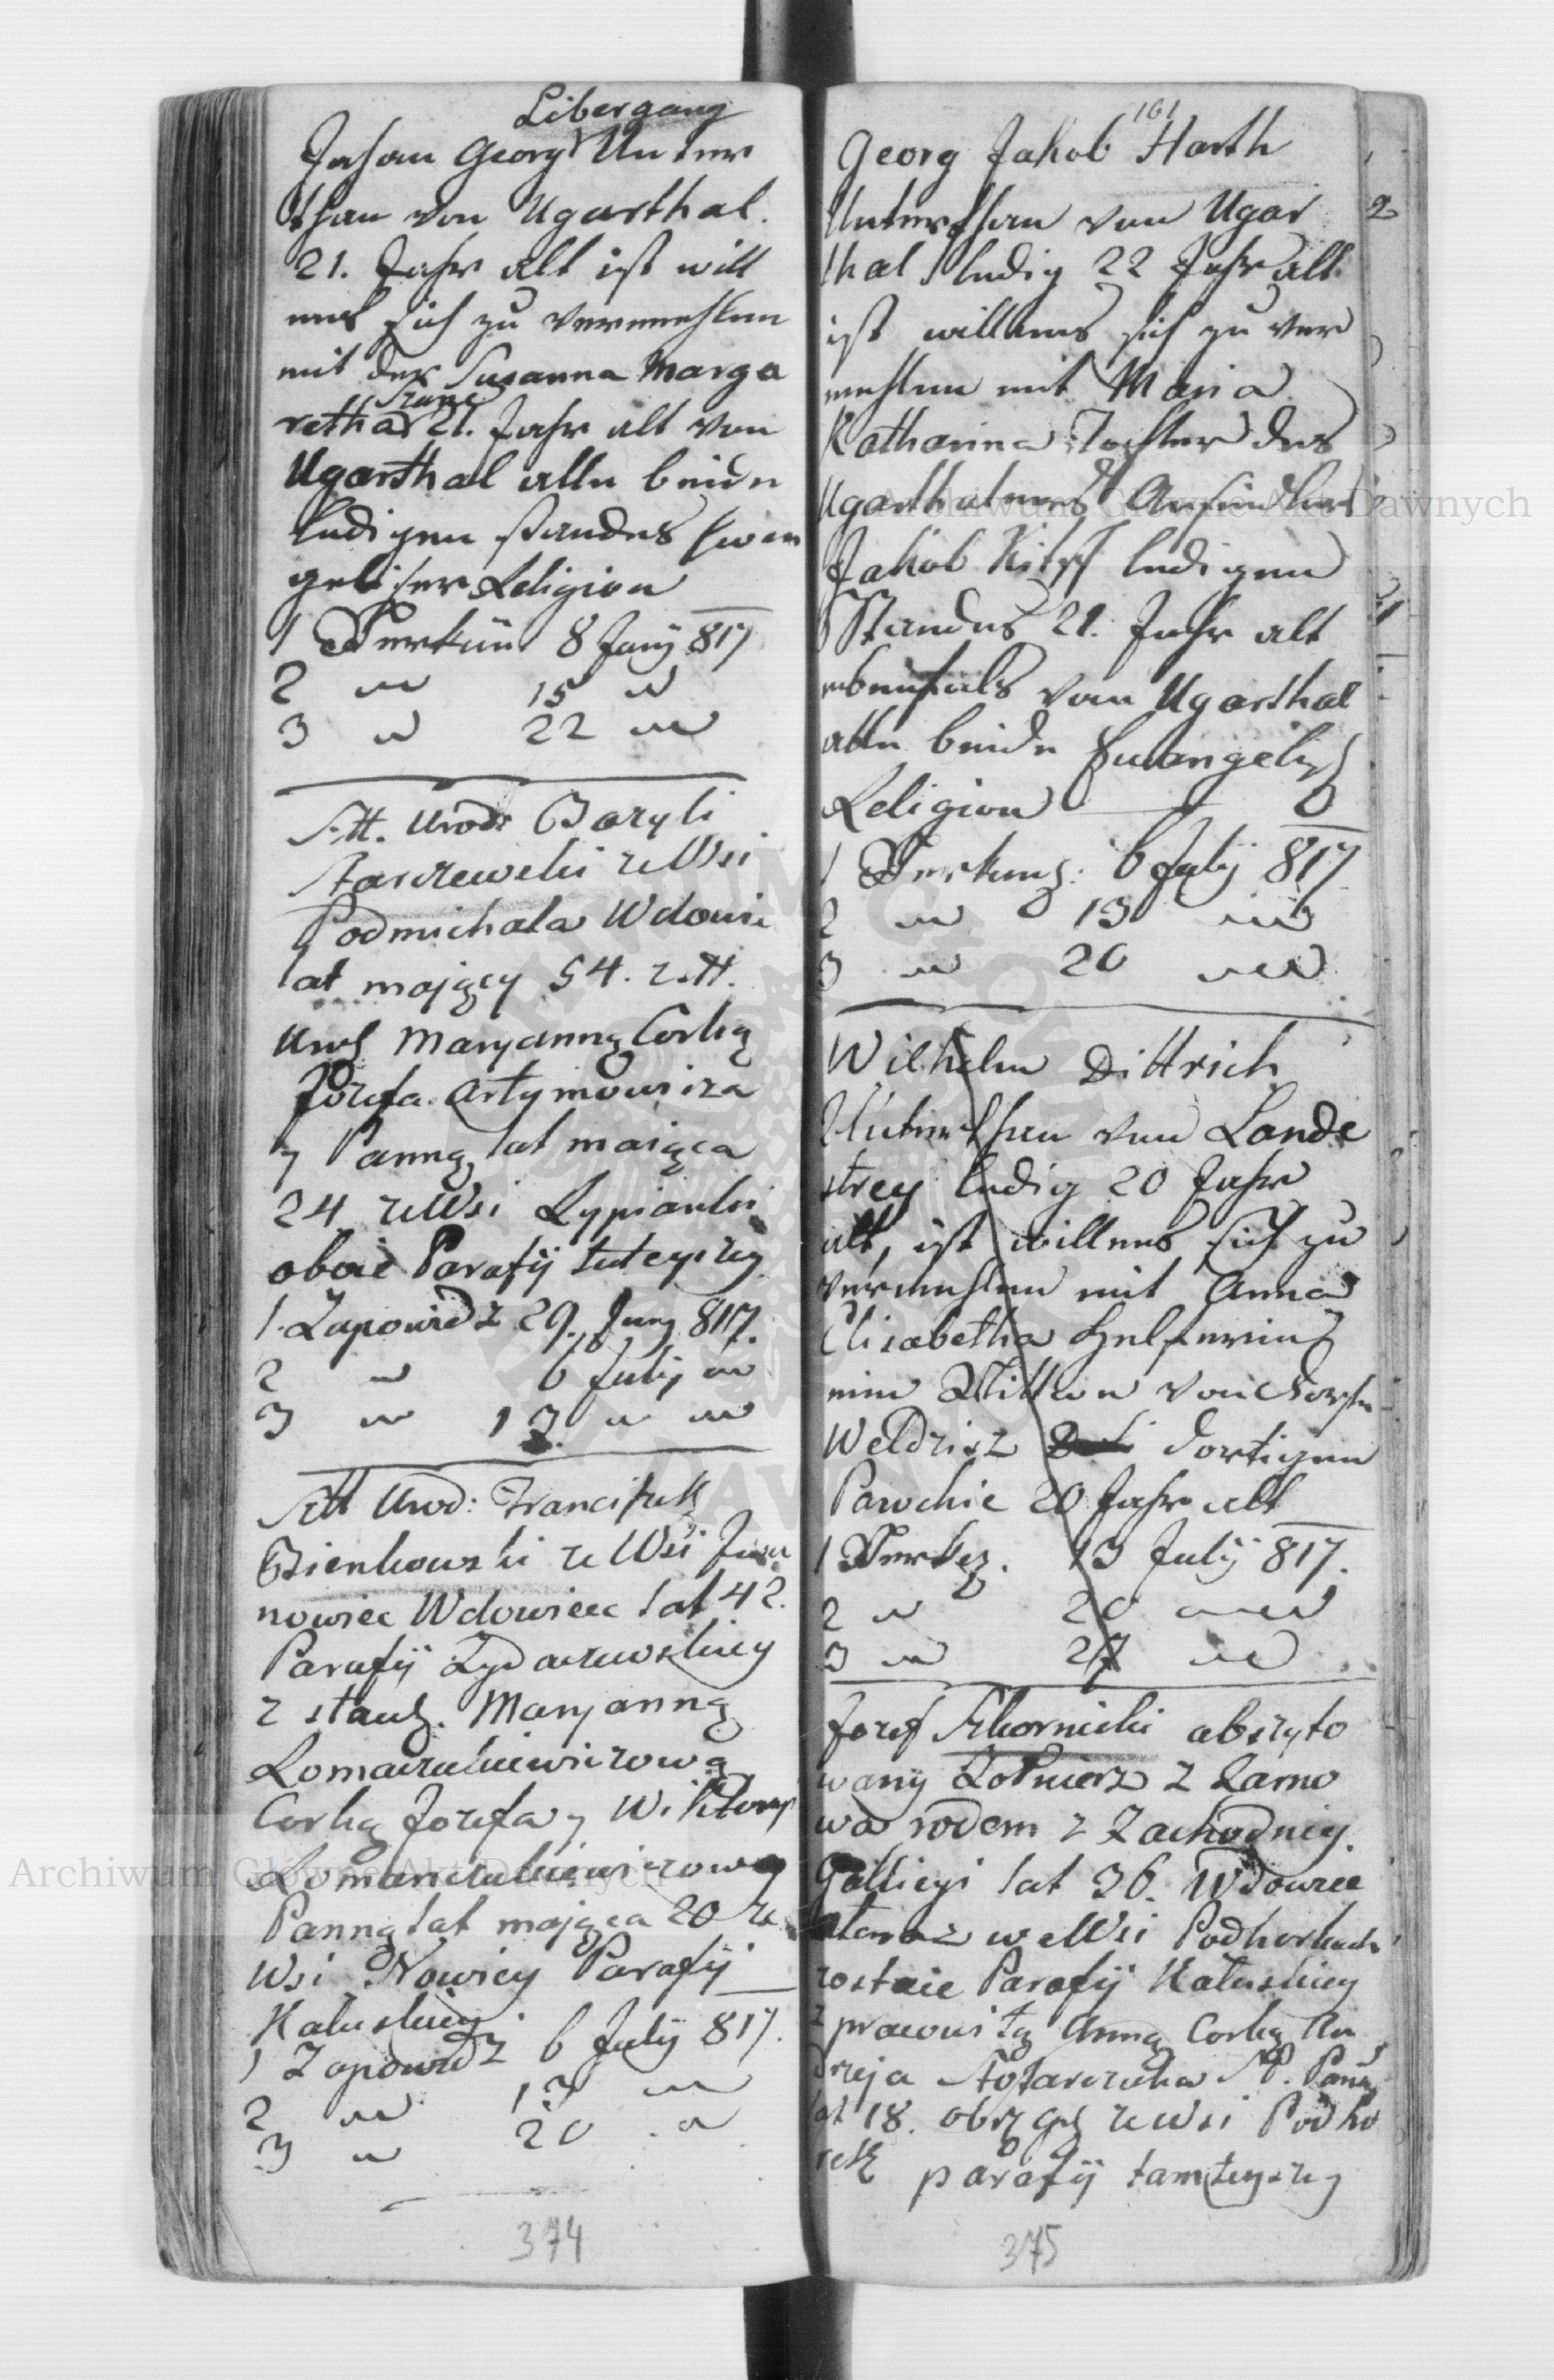 Libergang
Johan Georg Unter
than von Ugarthal.
21. Jahr alt ist will
ens sich zu vermehlen
mit der Susanna Marga
retha 21. Jahr alt von
Ugarthal alle beide
ledigen standes Ewan
gelischer Religion
1 Verkün 8 Juny 817
2 " 15 "
3 " 22 "
Stt. Urodz Bazyli
Tarczewski ze Wsi
Podmichala Wdowiec
lat mający 54. z Stt.
Urodz Maryanną Corką
Jozefa Artymowicza
y Panną lat maiąca
24 ze Wsi Lypianki
oboie Parafij tuteyszey
1. Zapowiedz 29. Juny 817.
2 " 6 July "
3 " 13 " "
Stt Urod: Franciszek
Bienkowski ze Wsi Iwa
nowiec Wdowiec lat 42.
Parafij Zydaczewskiey
z Maryanną
Romaszukiewiczową
Corką Jozefa y Wiktoryi
Panną lat mająca 20 ze
Wsi Nowicy Parafij
Kałuskiey
1 Zapowiedz 6 July 817.
2 " 13 "
3 " 20 "
374
161
Georg Jakob Harth
Unterthan von Ugar
thal ledig 22 Jahr alt
ist willens sich zu ver
mehlen mit Maria
Katharina Tochter des
Ugarthalers Ansiedlers
Jakob ledigen
Standes 21. Jahr alt
ebenfals von Ugarthal
alle beide Ewangelisch
Religion
1 Verkung: 6 July 817
2 " 13 "
3 " 20 "
Wilhelm Dittrich
Unterthan von Lande
strey ledig 20 Jahr
alt, ist willens sich zu
vermehlen mit Anna
Elisabetha
eine Wittwe von
Weldzisz dortigen
Parochie 20 Jahr alt
1 Verkg. 13 July 817.
2 " 20 "
3 " 27 "
Jozef Skornicki abszyto
wany Zołnierz z Tarno
wa rodem z Zachodniey
Galliciyi lat 36. Wdowiec
teraz we Wsi Podhorkach
zostaie Parafij Kałuskiey
z pracowitą Anną Corką An
dreja Stolarczuka Panną
lat 18. obrz ze Wsi Podho
rek parafij tamteyszey
375
Archiwum Główne Akt Dawnych
Archiwum Główne Akt Dawnych